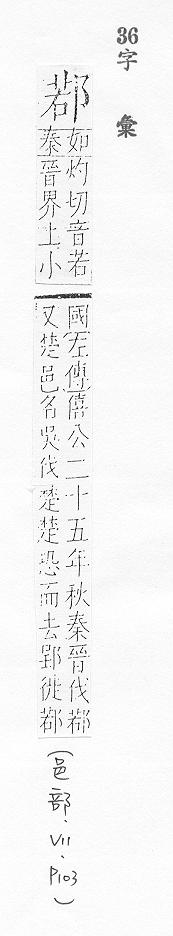 36字彙
鄀
如灼切音若
秦晉界上小
國左傳僖公二十五年秋秦晉伐鄀
又楚邑名吳伐楚楚恐而去郢徙鄀
(邑部.VII.P103)